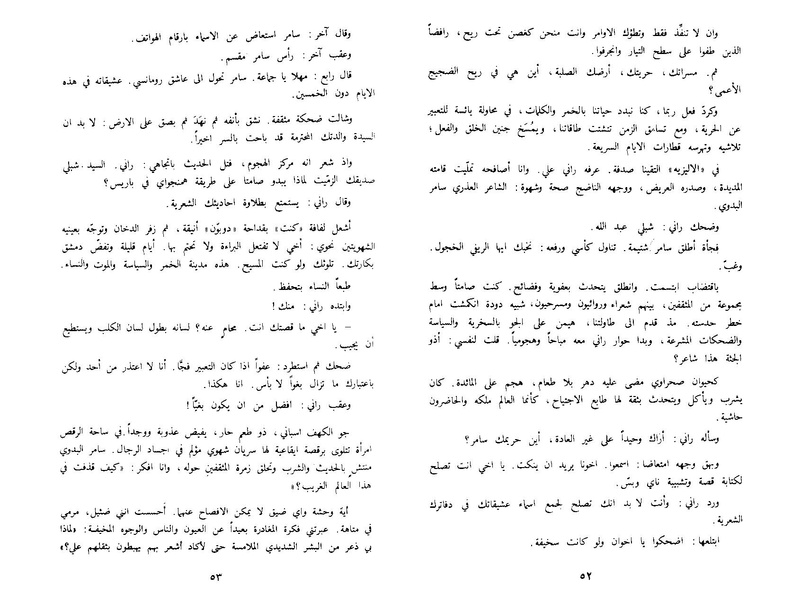 وان لا تنفّذ فقط وتطؤك الاوامر وانت منحن كغصن تحت ريح، رافضاً
الذين طفوا على سطح التيار وانجرفوا.
ثم. مسراتك، حريتك، أرضك الصلبة، أين هي في ريح الضجيج
الأعمى؟
وكردّ فعل ربما، كنا نبدد حياتنا بالخمر والكلمات، في محاولة يائسة للتعبير
عن الحرية، ومع تسامق الزمن تتشتت طاقاتنا، ويُمسَخ جنين الخلق والفعل؛
تلاشيه وتهرسه قطارات الايام السريعة.
في «الاليزيه» التقينا صدفة. عرفه راني علي. وانا أصافحه تملّيت قامته
المديدة، وصدره العريض، ووجهه الناضج صحة وشهوة: الشاعر العذري سامر
البدوي.
وضحك راني: شبلي عبد الله.
فجأة أطلق سامر شتيمة. تناول كأسي ورفعه: نخبك ايها الريفي الخجول.
وغبّ.
باقتضاب ابتسمت. وانطلق يتحدث بعفوية وفضائح. كنت صامتاً وسط
مجموعة من المثقفين، بينهم شعراء وروائيون ومسرحيون، شبيه دودة انكمشت امام
خطر حدسته. مذ قدم الى طاولتنا، هيمن على الجو بالسخرية والسياسة
والضحكات المشرعة، وبدا حوار راني معه مباحاً وهجومياً. قلت لنفسي: أذو
الجثة هذا شاعر؟
كحيوان صحراوي مضى عليه دهر بلا طعام، هجم على المائدة. كان
يشرب ويأكل ويتحدث بثقة لها طابع الاجتياح، كأنما العالم ملكه والحاضرون
حاشية.
وسأله راني: أراك وحيداً على غير العادة، أين حريمك سامر؟
وبهق وجهه امتعاضا: اسمعوا. اخونا يريد ان ينكت. يا اخي انت تصلح
لكتابة قصة وتشبيبة ناي وبسّ.
ورد راني: وأنت لا بد انك تصلح لجمع اسماء عشيقاتك في دفاترك
الشعرية.
ابتلعها: اضحكوا يا اخوان ولو كانت سخيفة.
٥٢
وقال آخر: سامر استعاض عن الاسماء بارقام الهواتف.
وعقب آخر: رأس سامر مقسم.
قال رابع: مهلا يا جماعة. سامر تحول الى عاشق رومانسي. عشيقاته في هذه
الايام دون الخمسين.
وشالت ضحكة مثقفة. نشق بأنفه ثم نهَدَ ثم بصق على الارض: لا بد ان
السيدة والدتك المحترمة قد باحت بالسر اخيراً.
واذ شعر انه مركز الهجوم، فتل الحديث باتجاهي: راني. السيد شبلي
صديقك الزمّيت لماذا يبدو صامتا على طريقة همنجواي في باريس؟
وقال راني: يستمتع بطلاوة احاديثك الشعرية.
أشعل لفافة «كنت» بقداحة «دوبون» أنيقة، ثم زفر الدخان وتوجّه بعينيه
الشهويتين نحوي: أخي لا تفتعل البراءة ولا تحتم بها. أيام قليلة وتفضّ دمشق
بكارتك. تلوثك ولو كنت المسيح. هذه مدينة الخمر والسياسة والموت والنساء.
طبعاً النساء بتحفظ.
وابتده راني: منك!
– يا اخي ما قصتك انت. محامٍ عنه؟ لسانه بطول لسان الكلب ويستطيع
أن يجيب.
ضحك ثم استطرد: عفواً اذا كان التعبير فجّا. أنا لا اعتذر من أحد ولكن
باعتبارك ما تزال بغواً لا بأس. انا هكذا.
وعقب راني: افضل من ان يكون بغيّاً!
جو الكهف اسباني، ذو طعم حار، يفيض عذوبة ووجداً في ساحة الرقص
امرأة تتلوى برقصة ايقاعية لها سريان شهوي مؤلم في اجساد الرجال. سامر البدوي
منتش بالحديث والشرب وتحلق زمرة المثقفين حوله، وانا افكر: «كيف قذفت في
هذا العالم الغريب؟»
أية وحشة واي ضيق لا يمكن الافصاح عنهما. أحسست انني ضئيل، مرمي
في متاهة. عبرتني فكرة المغادرة بعيداً عن العيون والناس والوجوه المخيفة: «لماذا
بي ذعر من البشر الشديدي الملامسة حتى لأكاد أشعر بهم يهبطون بثقلهم علي؟»
٥٣